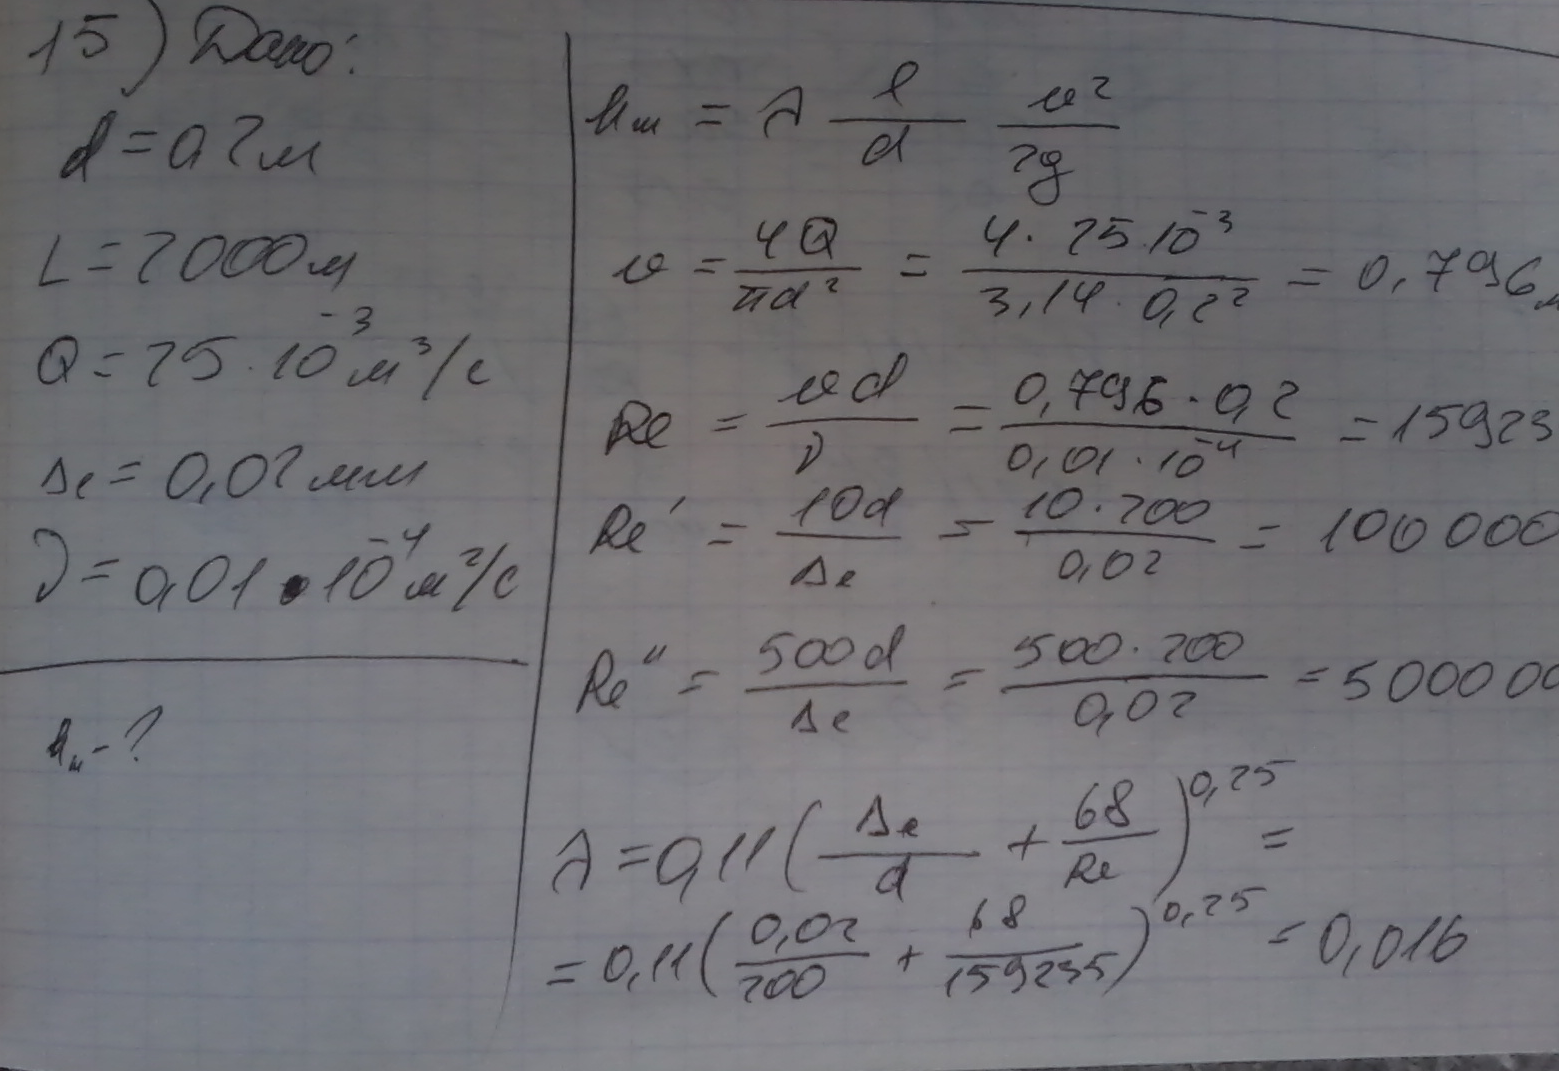 15) Дано:
d = 0,2 м
L = 2000 м
Q = 25 · 10⁻³ м³/с
Δe = 0,02 мм
ν = 0,01 · 10⁻⁴ м²/с
hₘ - ?
hₘ = λ l/d v²/2g
v = 4Q/πd² = 4 · 25 · 10⁻³/3,14 · 0,2² = 0,796
Re = vd/ν = 0,796 · 0,2/0,01 · 10⁻⁴ = 15923
Re' = 10d/Δe = 10 · 200/0,02 = 100 000
Re" = 500d/Δe = 500 · 200/0,02 = 500000
λ = 0,11 (Δe/d + 68/Re)^0,25 =
= 0,11 (0,02/200 + 68/159235)^0,25 = 0,016